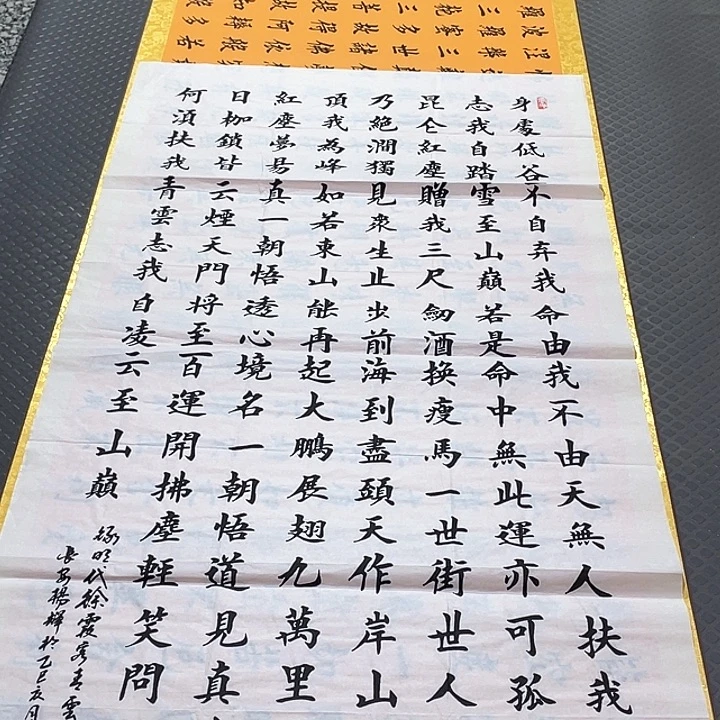 身處低谷不自弃我命由我不由天無人扶我
志我自踏雪至山巔若是命中無此運亦可孤
昆仑紅塵贈我三尺劒酒換瘦馬一世街世人
乃絕澗獨見衆生止步前海到盡頭天作岸山
頂我為峰如若東山能再起大鵬展翅九萬里
紅塵夢易真一朝悟透心境名一朝悟道見真
日枷鎖皆云煙天門將至百運開拂塵輕笑問
何須扶我青雲志我自凌云至山巔
錄明代徐霞客青雲
長安楊輝於乙巳亥月